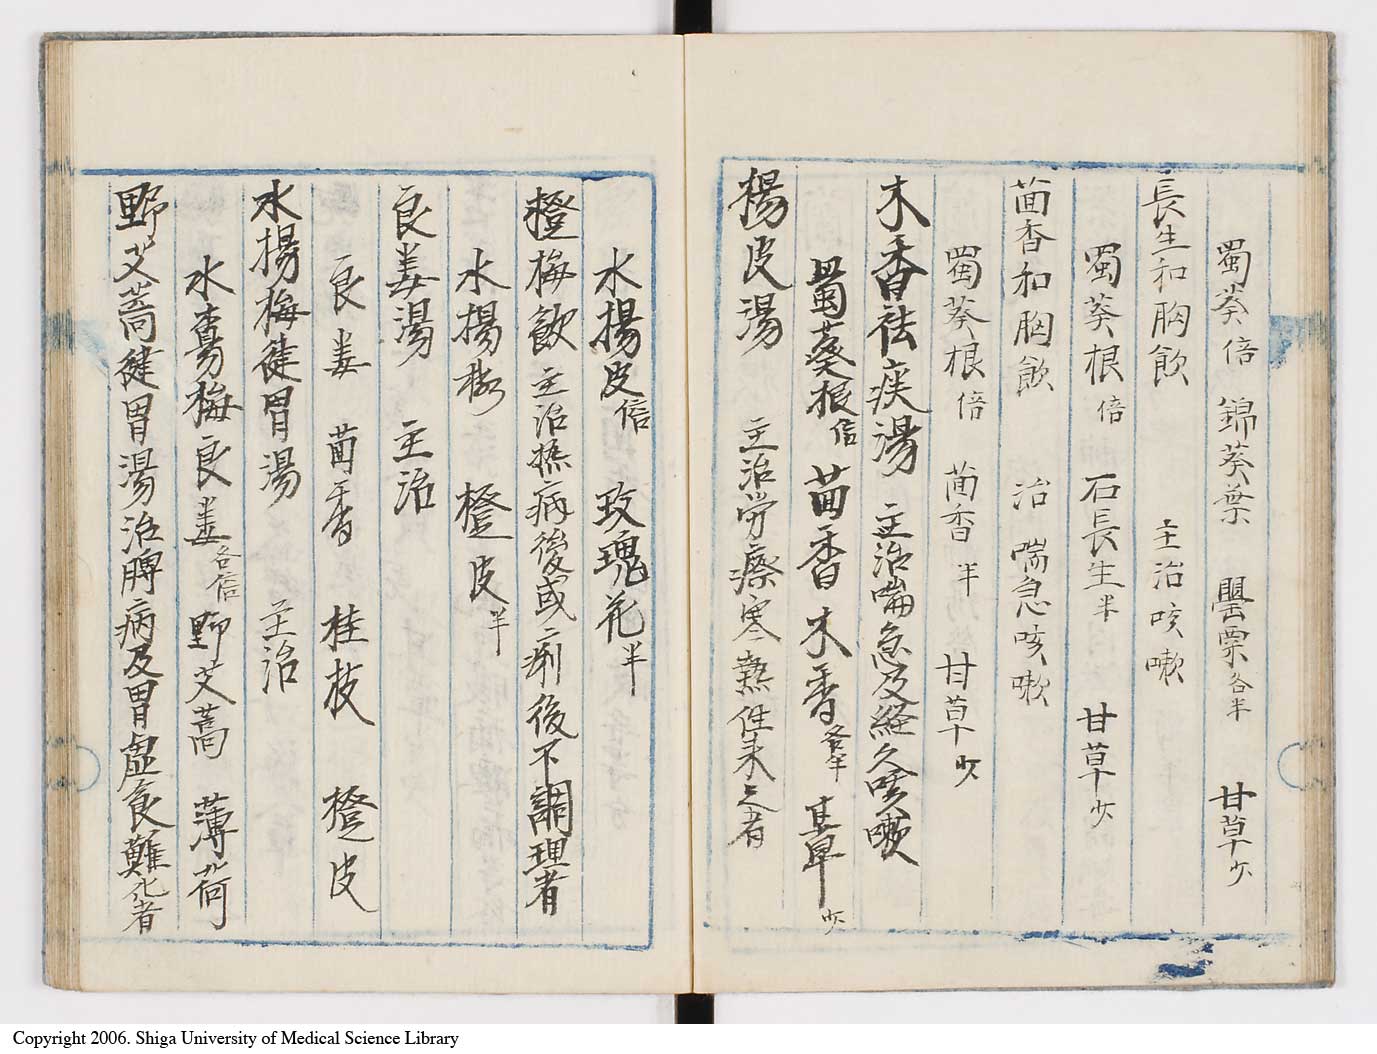 蜀葵倍 錦葵葉 罌粟各半 甘草少
長生和胸飲 主治咳嗽
蜀葵根倍 石長生半 甘草少
茴香和胸飲 治喘急咳嗽
蜀葵根倍 茴香半 甘草少
木香祛痰湯 主治喘急及経久咳嗽
蜀葵根倍 茴香 木香各半 甘草少
楊皮湯 主治労瘵寒熱往来之者
水楊皮倍 玫瑰花半
橙梅飲 主治 病後或痢後不調理者
水楊梅 橙皮半
良姜湯 主治
良姜 茴香 桂枝 橙皮
水揚梅健胃湯 主治
水楊梅 良姜各倍 野艾蒿 薄荷
野艾蒿健胃湯 治脾病及胃虚食難化者
Copyright 2006. Shiga University of Medical Science Library